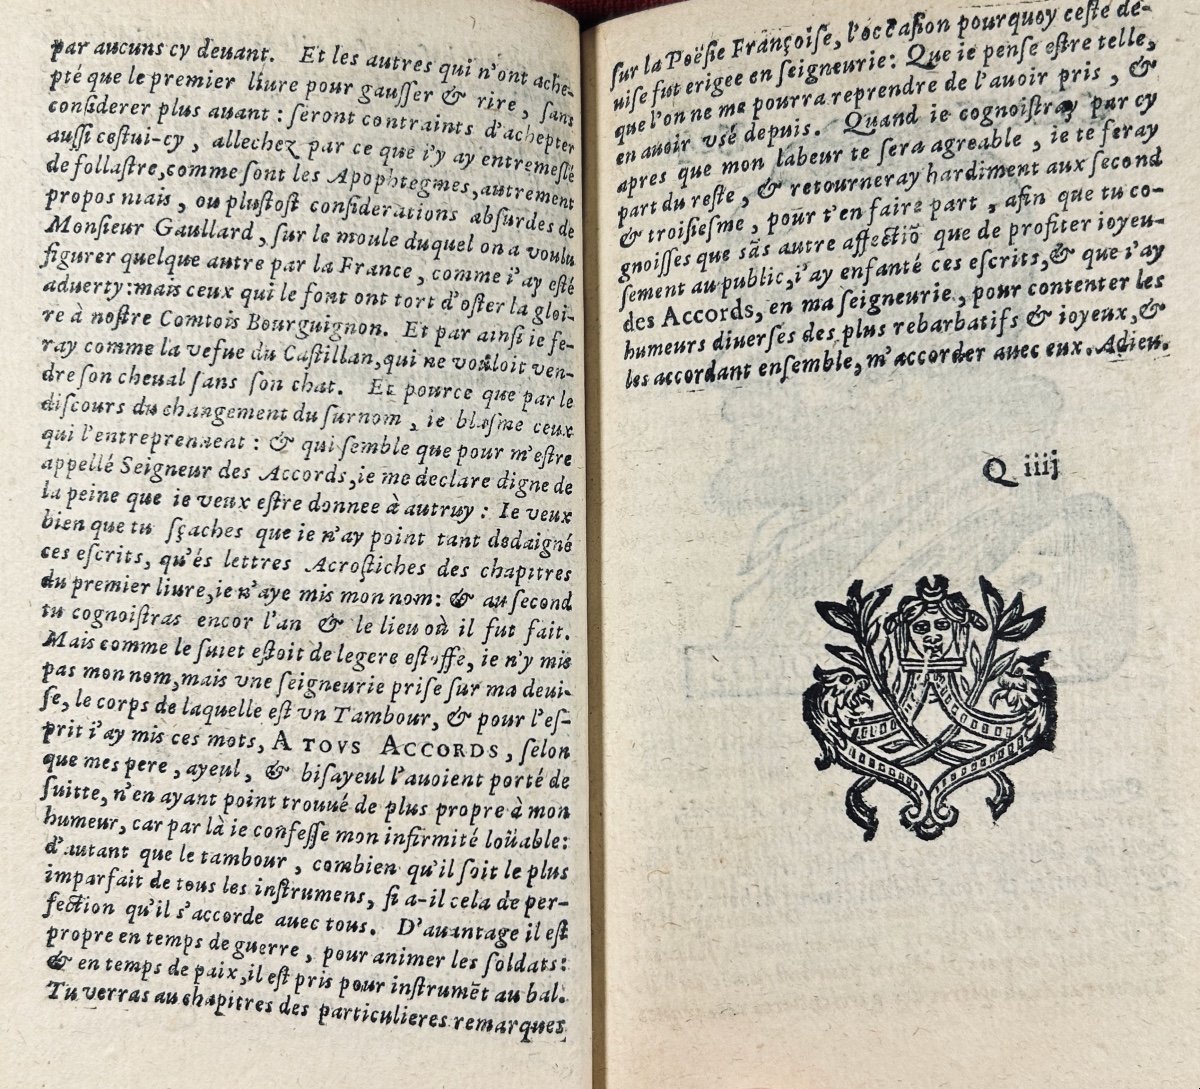 par aucuns cy deuant. Et les autres qui n'ont ache-
pté que le premier liure pour gausser & rire, sans
considerer plus auant: seront contraints d'achepter
aussi cestui-cy, allechez par ce que i'y ay entremeslé
de follastre, comme sont les Apophtegmes, autrement
propos niais, ou plustost considerations absurdes de
Monsieur Gaullard, sur le moule duquel on a voulu
figurer quelque autre par la France, comme i'ay esté
aduerty: mais ceux qui le font ont tort d'oster la gloi-
re à nostre Comtois Bourguignon. Et par ainsi ie fe-
ray comme la vefue du Castillan, qui ne vouloit ven-
dre son cheual sans son chat. Et pource que par le
discours du changement du surnom, ie blasme ceux
qui l'entreprennent: & qui semble que pour m'estre
appellé Seigneur des Accords, ie me declare digne de
la peine que ie veux estre donnee à autruy: Ie veux
bien que tu sçaches que ie n'ay point tant dedaigné
ces escrits, qu'és lettres Acrostiches des chapitres
du premier liure, ie n'aye mis mon nom: & au second
tu cognoistras encor l'an & le lieu où il fut fait.
Mais comme le suiet estoit de legere estoffe, ie n'y mis
pas mon nom, mais vne seigneurie prise sur ma deui-
se, le corps de laquelle est vn Tambour, & pour l'es-
prit i'ay mis ces mots, A TOVS ACCORDS, selon
que mes pere, ayeul, & bisayeul l'auoient porté de
suitte, n'en ayant point trouué de plus propre à mon
humeur, car par là ie confesse mon infirmité loüable:
d'autant que le tambour, combien qu'il soit le plus
imparfait de tous les instrumens, si a-il cela de per-
fection qu'il s'accorde auec tous. D'auantage il est
propre en temps de guerre, pour animer les soldats:
& en temps de paix, il est pris pour instrumēt au bal.
Tu verras au chapitres des particulieres remarques
sur la Poësie Françoise, l'occasion pourquoy ceste de-
uise fut erigee en seigneurie: Que ie pense estre telle,
que l'on ne me pourra reprendre de l'auoir pris, &
en auoir vsé depuis. Quand ie cognoistray par cy
apres que mon labeur te sera agreable, ie te feray
part du reste, & retourneray hardiment aux second
& troisiesme, pour t'en faire part, afin que tu co-
gnoisses que sãs autre affectiõ que de profiter ioyeu-
sement au public, i'ay enfanté ces escrits, & que i'ay
des Accords, en ma seigneurie, pour contenter les
humeurs diuerses des plus rebarbatifs & ioyeux, &
les accordant ensemble, m'accorder auec eux. Adieu.
Q iiij